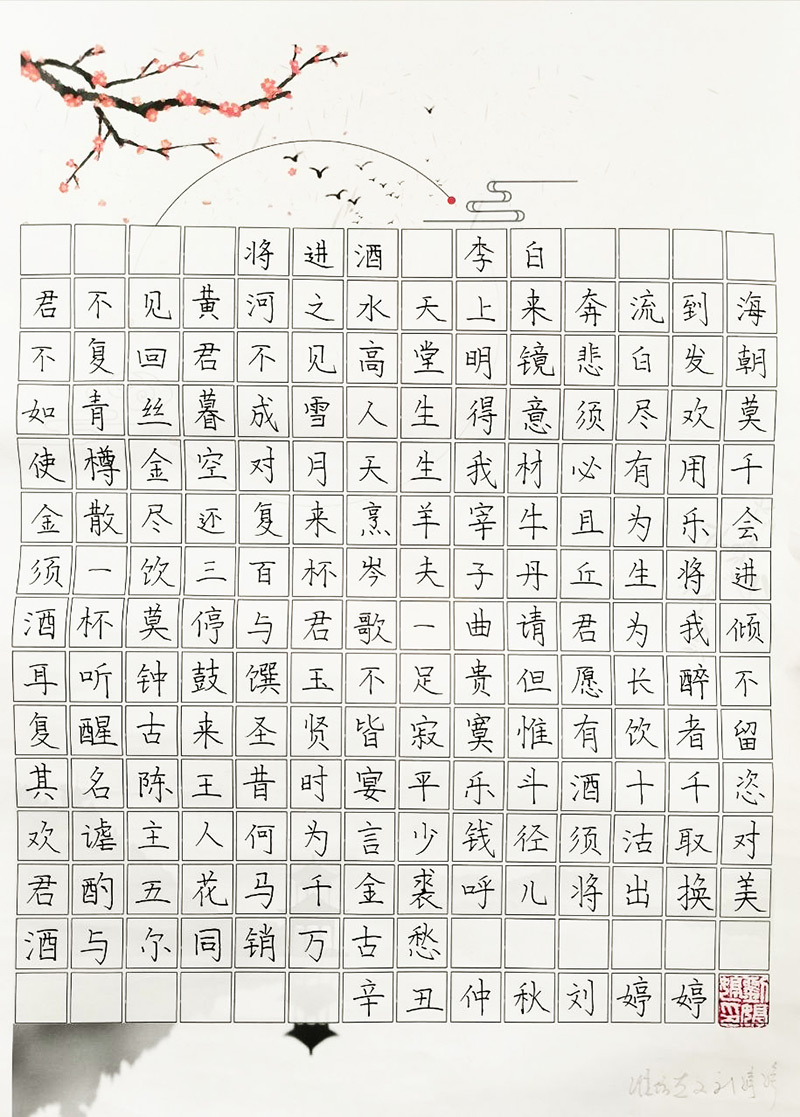 将进酒 李白
君不见黄河之水天上来奔流到海
不复回君不见高堂明镜悲白发朝
如青丝暮成雪人生得意须尽欢莫
使樽金空对月天生我材必有用千
金散尽还复来烹羊宰牛且为乐会
须一饮三百杯岑夫子丹丘生将进
酒杯莫停与君歌一曲请君为我倾
耳听钟鼓馔玉不足贵但愿长醉不
复醒古来圣贤皆寂寞惟有饮者留
其名陈王昔时宴平乐斗酒十千恣
欢谑主人何为言少钱径须沽取对
君酌五花马千金裘呼儿将出换美
酒与尔同销万古愁
辛丑仲秋刘婷婷